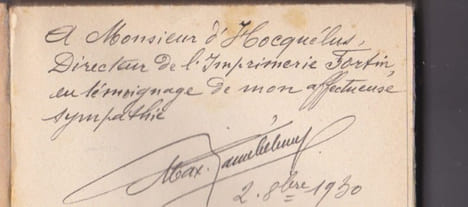 A Monsieur d'Hocquélus,
Directeur de l'Imprimerie Fortin,
en témoignage de mon affectueuse
sympathie
Max.
2. 8bre 1930